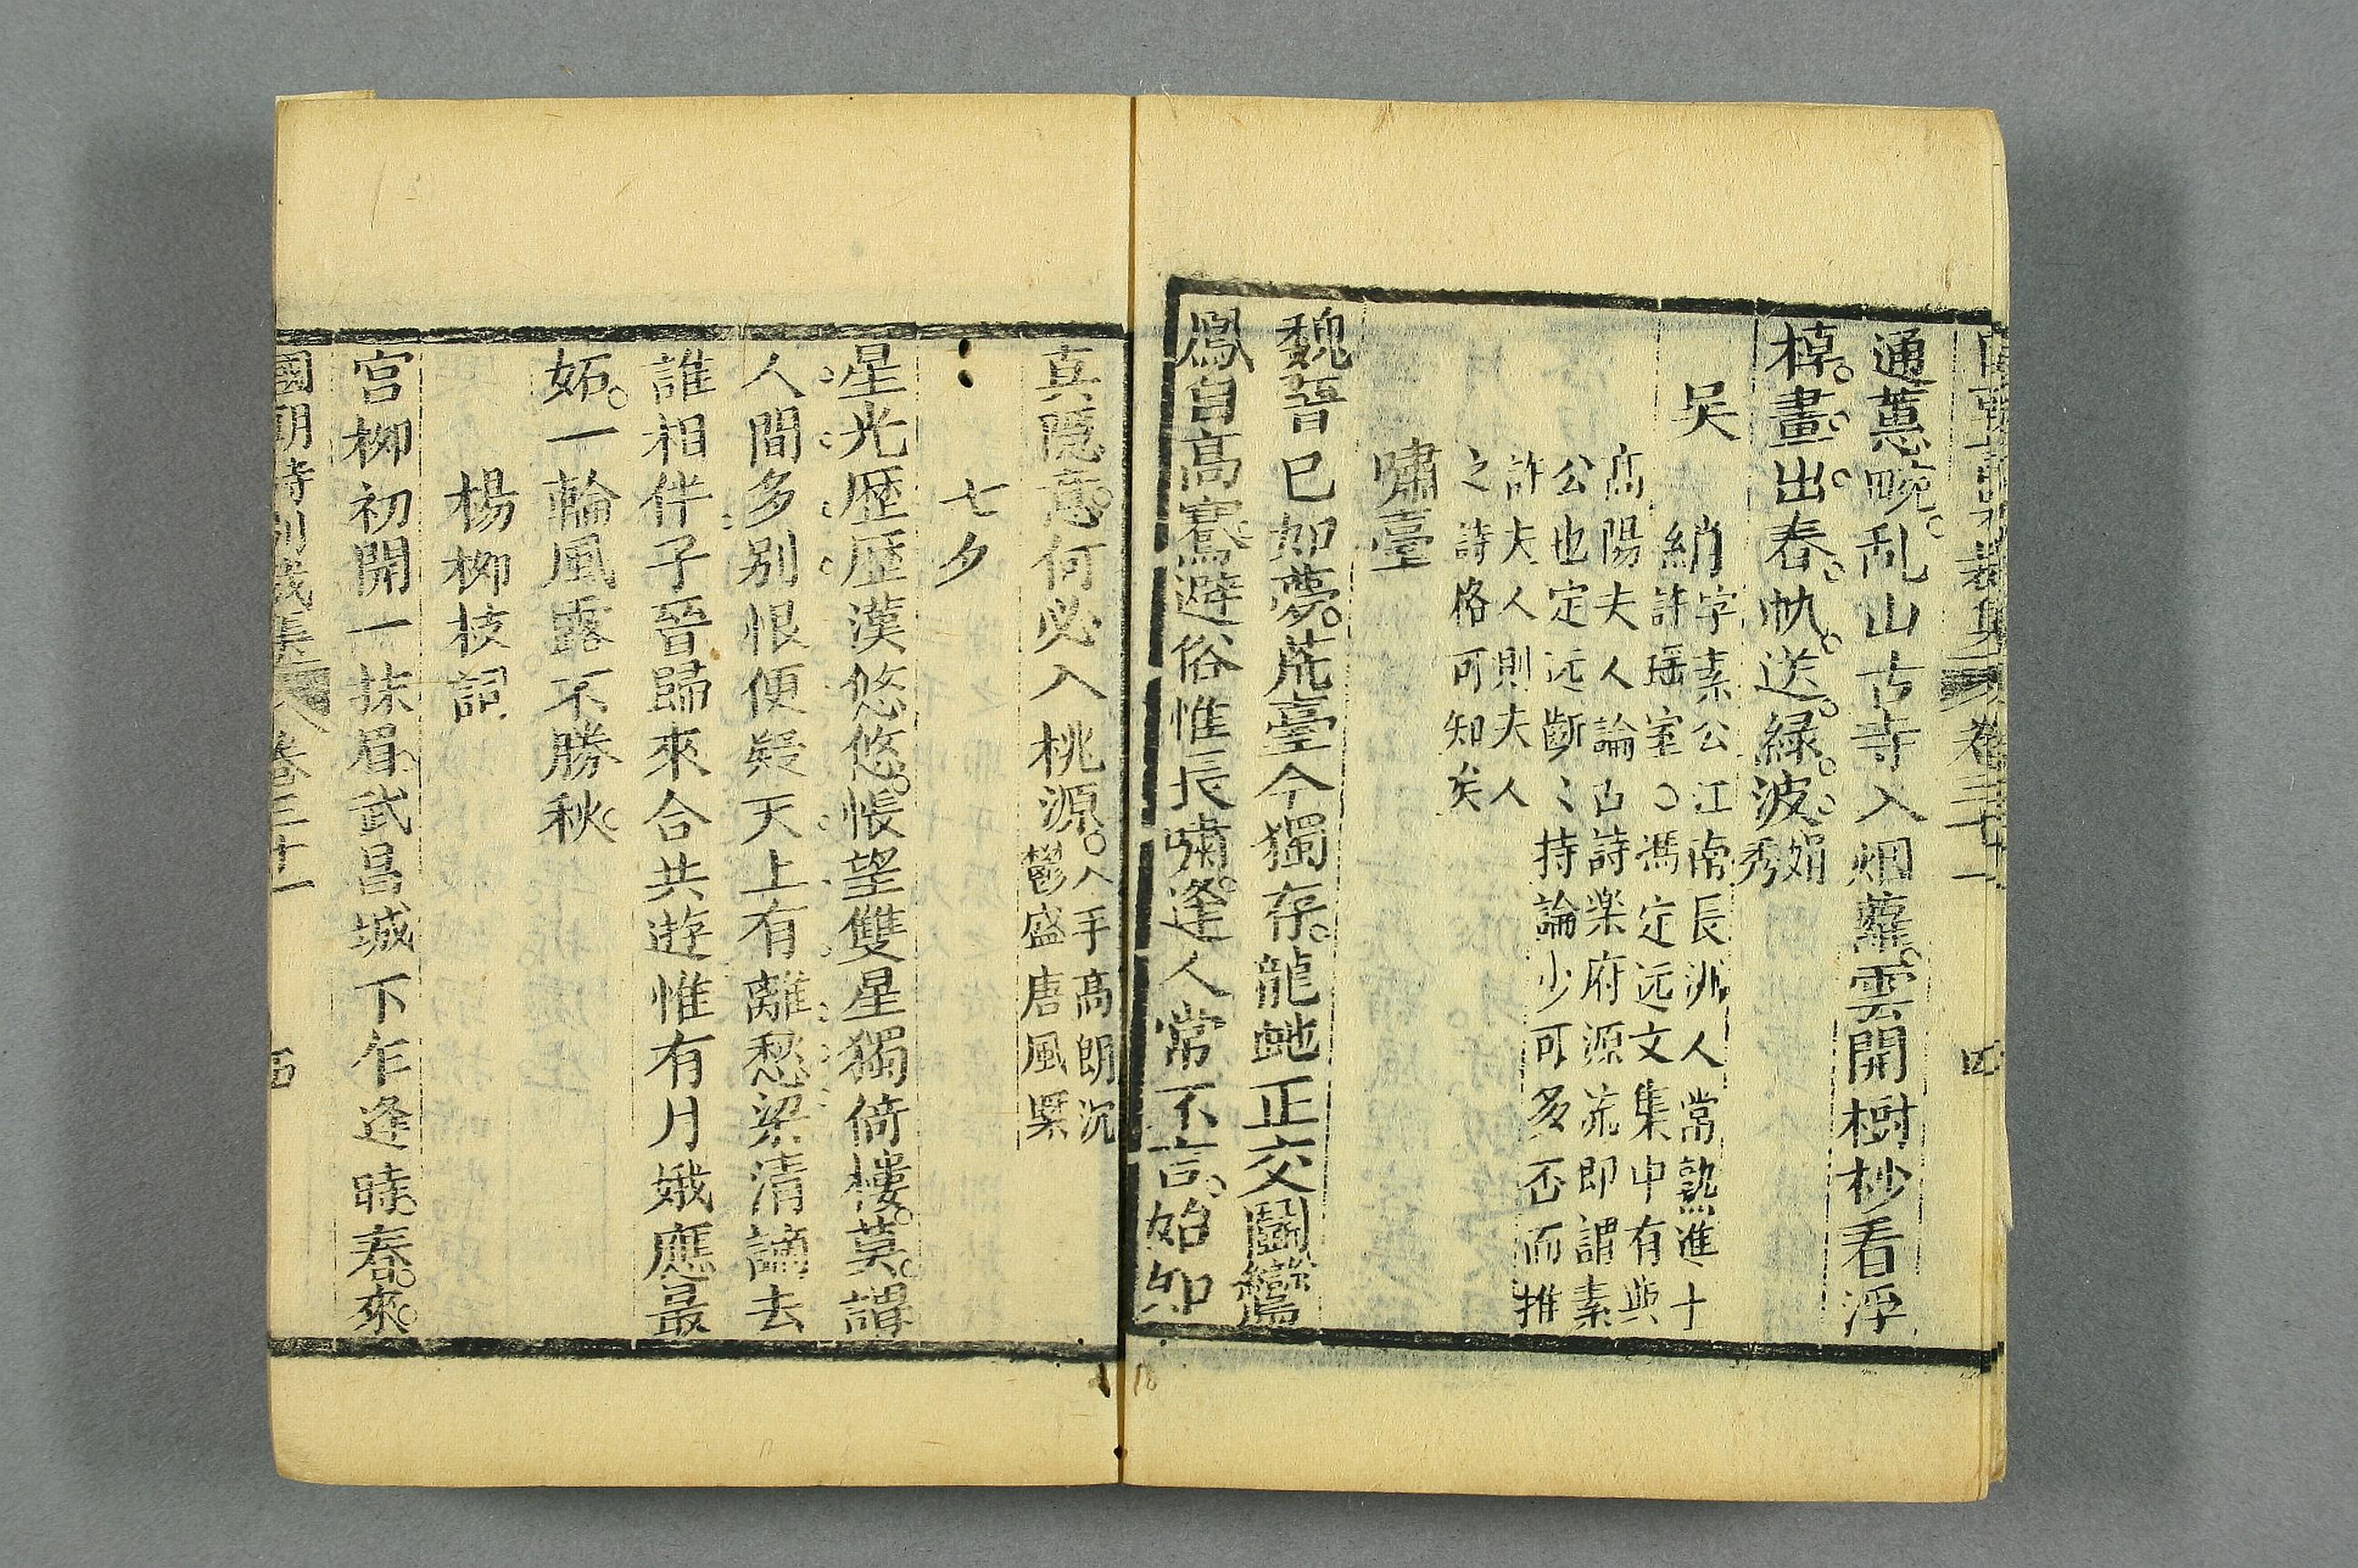 國朝詩別裁集 卷三十一 四
通蕙畹。乱山古寺入烟蘿。雲開樹杪看浮
槕。畫出春帆送緑波。娟秀
吴綃字素公江南長洲人常熟進士
許瑶室〇馮定远文集中有與
高陽夫人論古詩楽府源流即謂素
公也定远斷〻持論少可多否而推
許夫人則夫人
之詩格可知矣
嘯臺
魏晋已如夢。荒臺今獨存。龍虵正交鬭鸞
鳳自高騫。避俗惟長嘯。逢人常不言。始知
真隱意。何必入桃源。入手高朗沉
鬱盛唐風槩
七夕
星光歷歷漢悠悠。悵望雙星獨倚樓。莫謂
人間多别恨便疑天上有離愁梁清謫去
誰相伴子晉歸來合共遊惟有月娥應最
妬。一輪風露不勝秋。
楊柳枝詞
宫柳初開一抹眉。武昌城下乍逢時。春來。
國朝詩別裁集 卷三十一 五